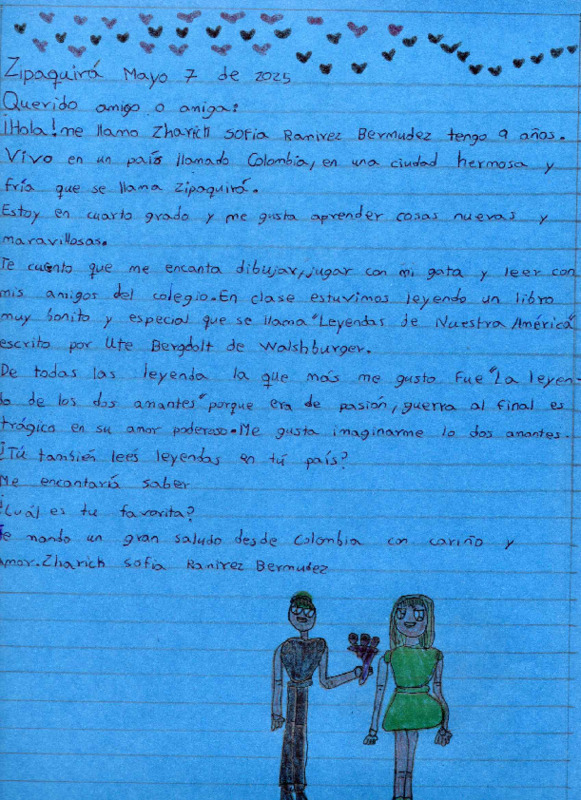 Zipaquirá Mayo 7 de 2025
Querido amigo o amiga:
¡Hola! me llamo Zharich Sofia Ramirez Bermudez tengo 9 años.
Vivo en un país llamado Colombia, en una ciudad hermosa y
fría que se llama Zipaquirá.
Estoy en cuarto grado y me gusta aprender cosas nuevas y
maravillosas.
Te cuento que me encanta dibujar, jugar con mi gata y leer con
mis amigos del colegio. En clase estuvimos leyendo un libro
muy bonito y especial que se llama "Leyendas de Nuestra América"
escrito por Ute Bergdolt de Walshburger.
De todas las leyenda la que más me gusto fue "La leyen-
da de los dos amantes" porque era de pasión, guerra al final es
trágico en su amor poderoso. Me gusta imaginarme lo dos amantes.
¿Tú también leés leyendas en tú país?
Me encantaría saber
¿Cuál es tu favorita?
Te mando un gran saludo desde Colombia con cariño y
Amor. Zharich Sofia Ramirez Bermudez